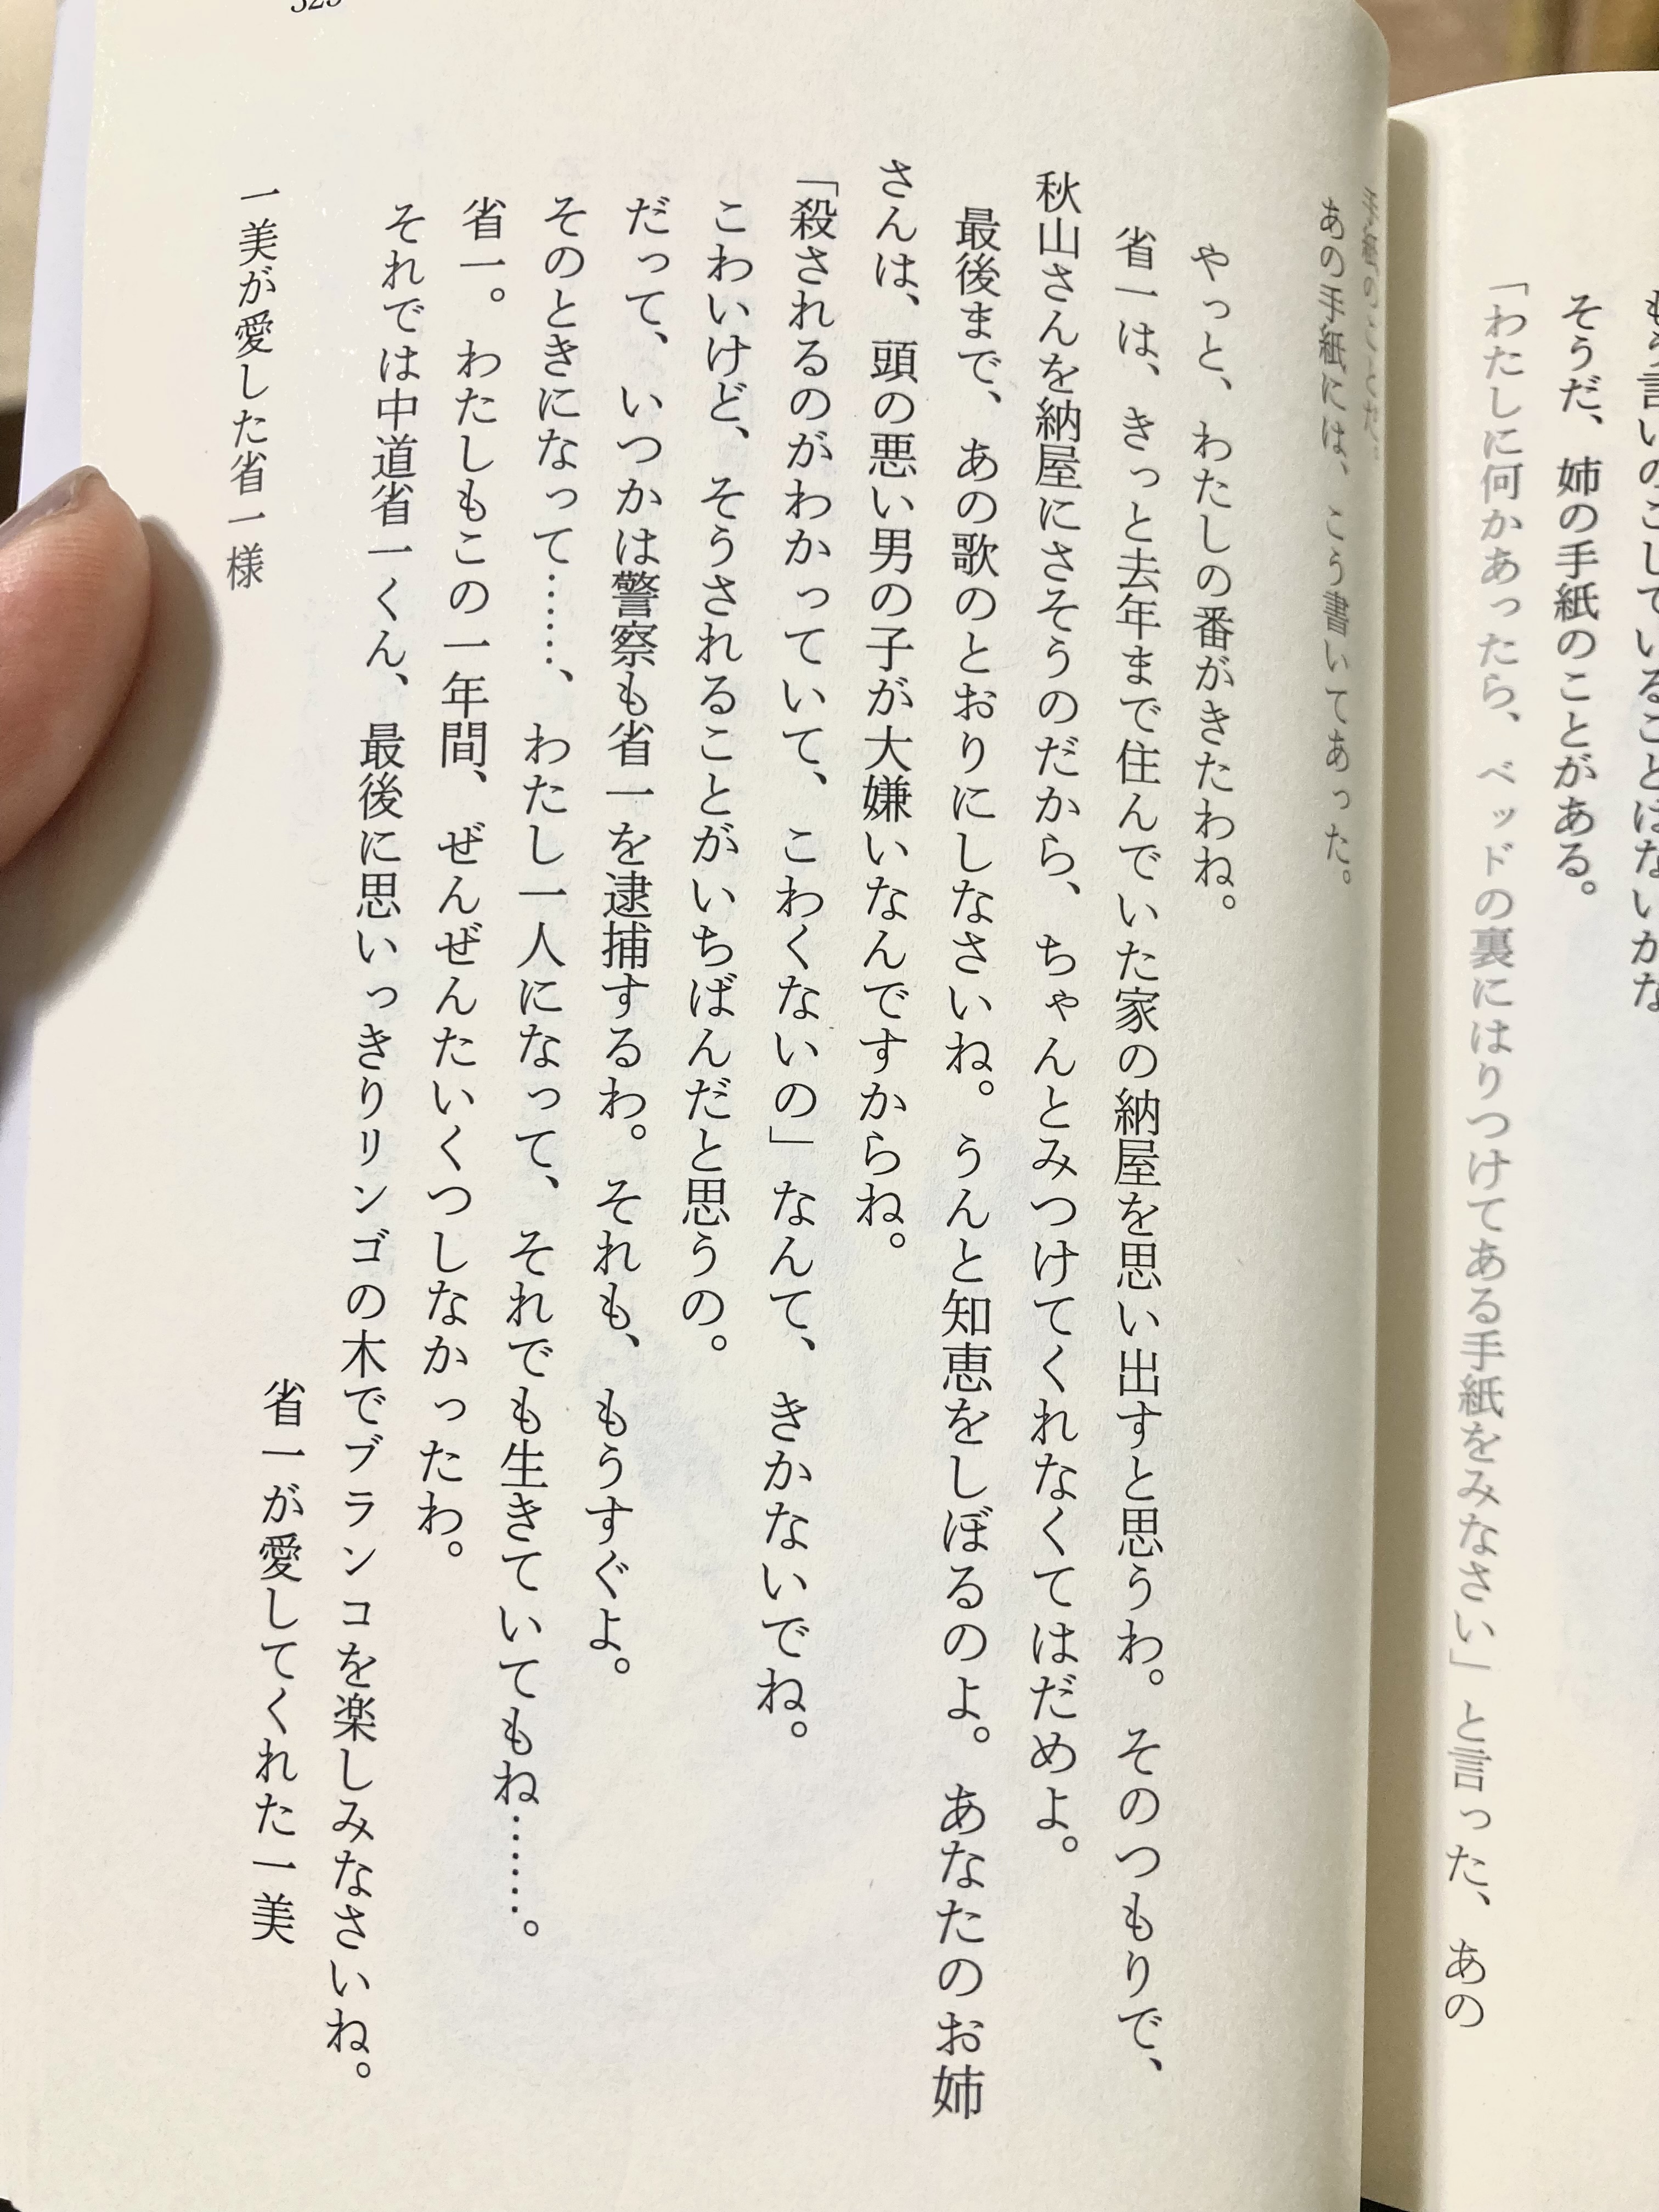 もう言いのこしていることはないかな
そうだ、姉の手紙のことがある。
「わたしに何かあったら、ベッドの裏にはりつけてある手紙をみなさい」と言った、あの
手紙のことだ。
あの手紙には、こう書いてあった。
やっと、わたしの番がきたわね。
省一は、きっと去年まで住んでいた家の納屋を思い出すと思うわ。そのつもりで、
秋山さんを納屋にさそうのだから、ちゃんとみつけてくれなくてはだめよ。
最後まで、あの歌のとおりにしなさいね。うんと知恵をしぼるのよ。あなたのお姉
さんは、頭の悪い男の子が大嫌いなんですからね。
「殺されるのがわかっていて、こわくないの」なんて、きかないでね。
こわいけど、そうされることがいちばんだと思うの。
だって、いつかは警察も省一を逮捕するわ。それも、もうすぐよ。
そのときになって……、わたし一人になって、それでも生きていてもね……。
省一。わたしもこの一年間、ぜんぜんたいくつしなかったわ。
それでは中道省一くん、最後に思いっきりリンゴの木でブランコを楽しみなさいね。
省一が愛してくれた一美
一美が愛した省一様